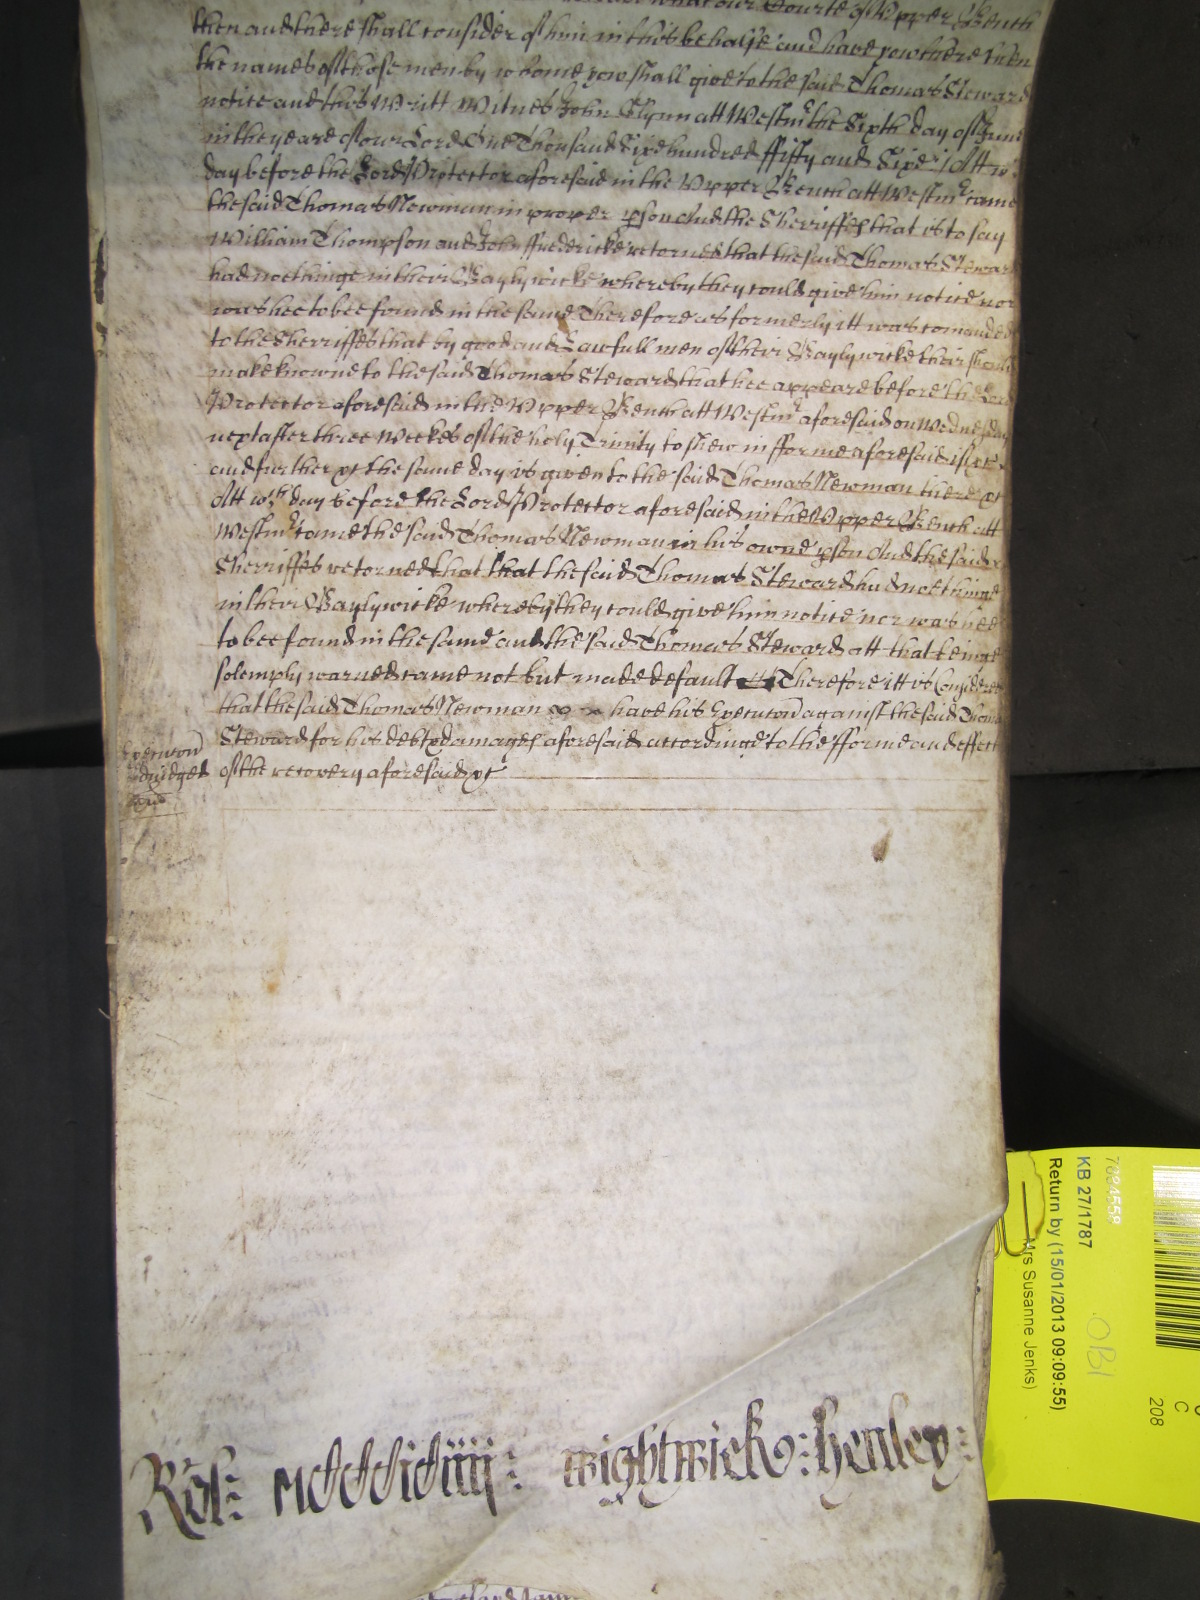 what our Courte of Upper Bench
then and there shall consider of him in this behalfe and have yow there then
the names of those men by whome yow shall give to the said Thomas Steward
notice and this Writt Witnes John Glynn att Westmr the Sixth day of June
in the yeare of our Lord One Thousand Sixe hundred ffifty and Sixe Att wch
day before the Lord Protector aforesaid in the Upper Bench att Westmr came
the said Thomas Newman in proper pson And the Sherriffes that is to say
William Thompson and John ffredericke retorned that the said Thomas Steward
had noethinge in their Baylywicke whereby they could give him notice nor
was hee to bee found in the same Therefore as formerly itt was comanded
to the Sherriffes that by good and Lawfull men of their Baylywicke they should
make knowne to the said Thomas Steward that hee appeare before the Lord
Protector aforesaid in the Upper Bench att Westmr aforesaid on Wednesday
next after three Weekes of the holy Trinity to shew in fforme aforesaid if &c
and further &c the same day is given to the said Thomas Newman there &c
Att wch day before the Lord Protector aforesaid in the Upper Bench att
Westmr came the said Thomas Newman in his owne pson And the said
Sherriffes retorned that that the said Thomas Steward had noethinge
in their Baylywicke whereby they could give him notice nor was hee
to bee found in the same and the said Thomas Steward att that beinge
solemply warned came not but made default Therefore itt is Considered
that the said Thomas Newman have his Execucon against the said Thomas
Steward for his debt & damages aforesaid accordinge to the fforme and effect
of the recovery aforesaid &c
Execucon
adiudged
Rol: wightwick: henley:
7894558
KB 27/1787
Return by (15/01/2013 09:09:55)
Mrs Susanne Jenks)
OB1
C
208